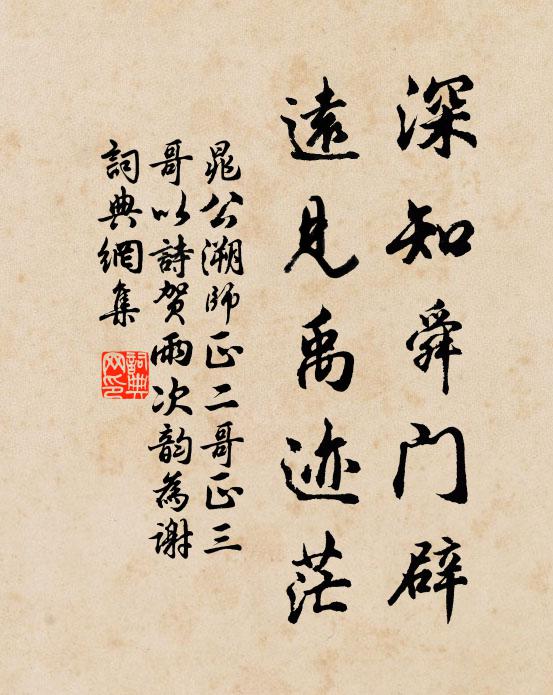 深知舜门辟
遠見禹迹茫
晁公溯師正二哥正三
哥以詩賀雨次韵為謝
詞典網集
詞典网印